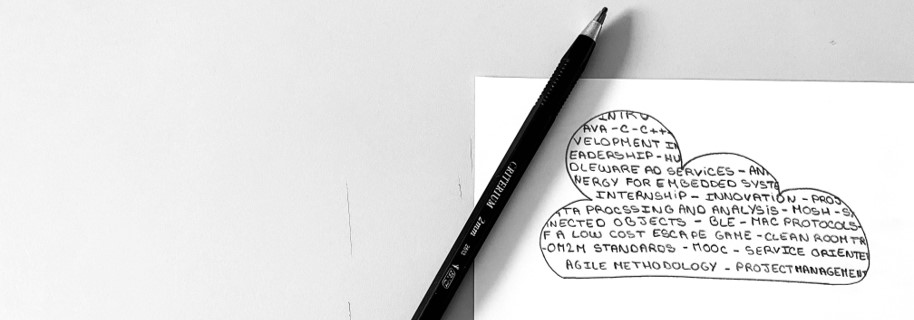 CRITERIUM 2mm 2613
INTRO
AVA - C - C++
VELOPMENT IN
EADERSHIP - HU
DLEWARE AD SERVICES - AN
NERGY FOR EMBEDDED SYSTE
INTERNSHIP - INNOVATION - PROJ
TA PROCSSING AND ANALYSIS - MOSH - S
NECTED OBJECTS - BLE - MAC PROTOCOLS-
F A LOW COST ESCAPE GAME - CLEAN ROOM TR
-OM2M STANDARDS - MOOC - SERVICE ORIENTE
AGILE METHODOLOGY - PROJECT MANAGEMENT